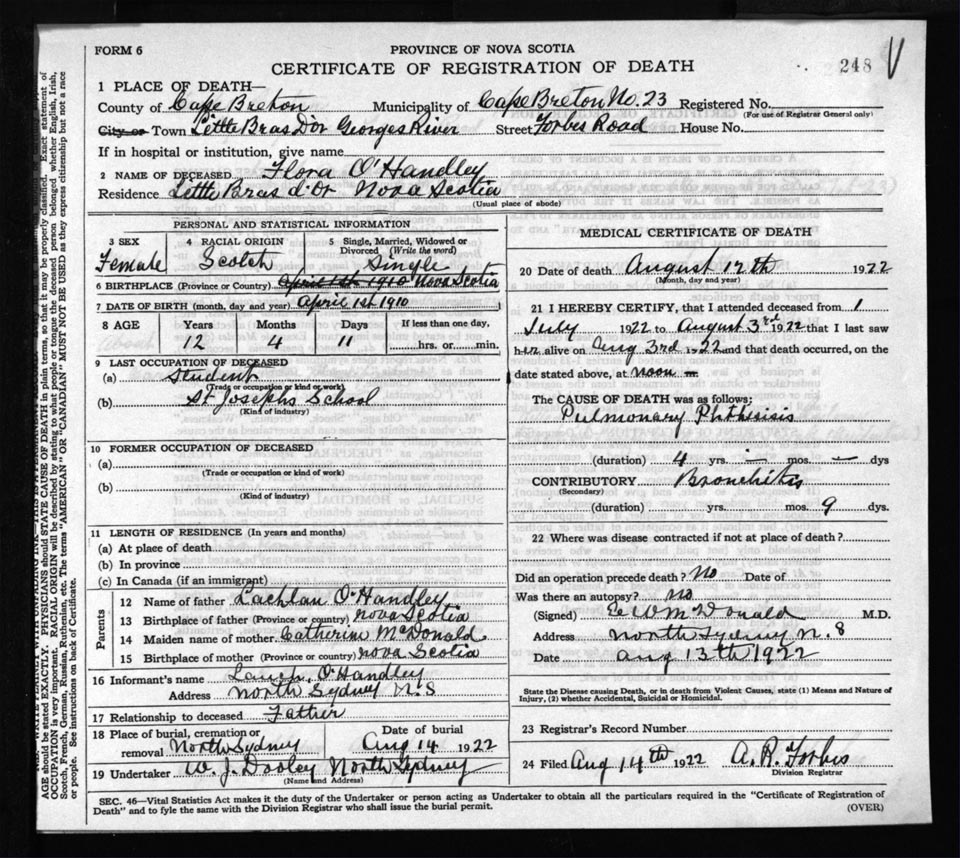 FORM 6
PROVINCE OF NOVA SCOTIA
CERTIFICATE OF REGISTRATION OF DEATH
248
1 PLACE OF DEATH—
County of Cape Breton Municipality of Cape Breton No. 23 Registered No.
(For use of Registrar General only)
City or Town Little Bras D'or Georges River Street Forbes Road House No.
If in hospital or institution, give name
2 NAME OF DECEASED Flora O'Handley
Residence Little Bras d'Or Nova Scotia
(Usual place of abode)
PERSONAL AND STATISTICAL INFORMATION
3 SEX 4 RACIAL ORIGIN 5 Single, Married, Widowed or Divorced (Write the word)
Female Scotch Single
6 BIRTHPLACE (Province or Country) April 1st 1910 Nova Scotia
7 DATE OF BIRTH (month, day and year) April 1st 1910
8 AGE Years Months Days If less than one day,
About 12 4 11 hrs. or min.
9 LAST OCCUPATION OF DECEASED
(a) Student
(Trade or occupation or kind of work)
(b) St Josephs School
(Kind of industry)
10 FORMER OCCUPATION OF DECEASED
(a)
(Trade or occupation or kind of work)
(b)
(Kind of industry)
11 LENGTH OF RESIDENCE (In years and months)
(a) At place of death
(b) In province
(c) In Canada (if an immigrant)
Parents
12 Name of father Lachlan O'Handley
13 Birthplace of father (Province or country) nova Scotia
14 Maiden name of mother Catherine McDonald
15 Birthplace of mother (Province or country) nova Scotia
16 Informant's name O'Handley
Address North Sydney N.S
17 Relationship to deceased Father
18 Place of burial, cremation or removal North Sydney Date of burial Aug 14 1922
19 Undertaker W. J. Dooley North Sydney
(Name and Address)
MEDICAL CERTIFICATE OF DEATH
20 Date of death August 12th 1922
(Month, day and year)
21 I HEREBY CERTIFY, that I attended deceased from 1
July 1922 to August 3rd 1922 that I last saw
her alive on Aug 3rd 1922 and that death occurred, on the
date stated above, at noon m
The CAUSE OF DEATH was as follows:
Pulmonary Phthisis
(duration) 4 yrs. — mos. — dys
CONTRIBUTORY Bronchitis
(Secondary)
(duration) yrs. mos. 9 dys.
22 Where was disease contracted if not at place of death?
Did an operation precede death? No Date of
Was there an autopsy? no
(Signed) McDonald M.D.
Address North Sydney N. S
Date Aug 13th 1922
State the Disease causing Death, or in death from Violent Causes, state (1) Means and Nature of
Injury, (2) whether Accidental, Suicidal or Homicidal.
23 Registrar's Record Number
24 Filed Aug 14th 1922 A. R. Forbes
Division Registrar
SEC. 46—Vital Statistics Act makes it the duty of the Undertaker or person acting as Undertaker to obtain all the particulars required in the "Certificate of Registration of
Death" and to fyle the same with the Division Registrar who shall issue the burial permit.
(OVER)
AGE should be stated EXACTLY. PHYSICIANS should STATE CAUSE OF DEATH in plain terms, so that it may be properly classified. Exact statement of
OCCUPATION is very important. RACIAL ORIGIN will be described by stating to what people or tongue the deceased person belonged whether English, Irish,
Scotch, French, German, Russian, Ruthenian, etc. The terms "AMERICAN" OR "CANADIAN" MUST NOT BE USED as they express citizenship but not a race
or people. See instructions on back of Certificate.